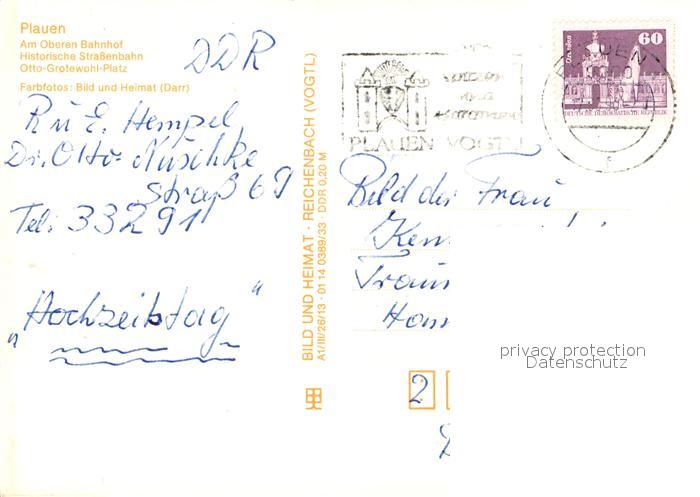 Plauen
Am Oberen Bahnhof
Historische Straßenbahn
Otto-Grotewohl-Platz
Farbfotos: Bild und Heimat (Darr)
DDR
R u E. Hempel
Dr. Otto-Nuschke
Straß 69
Tel: 33291
"Hochzeitstag"
BILD UND HEIMAT · REICHENBACH (VOGTL)
A1/III/26/13 · 01 14 0389/33 · DDR 0,20 M
PLAUEN VOGTL
60
DEUTSCHE DEMOKRATISCHE REPUBLIK
Bild der Frau
2
privacy protection
Datenschutz